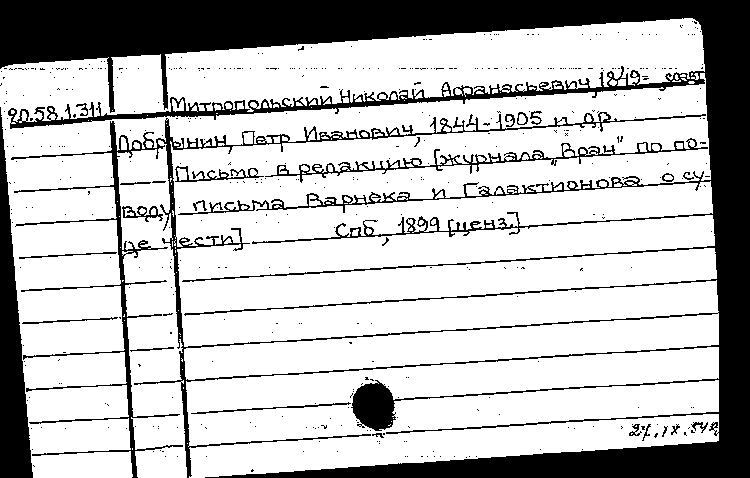 20.58.1.311 Митропольский, Николай Афанасьевич, 1849- , соавт.
Добрынин, Петр Иванович, 1844-1905 и др.
Письмо в редакцию [журнала „Врач" по по-
воду письма Варнека и Галактионова о су-
де чести] Спб., 1899 [ценз.]